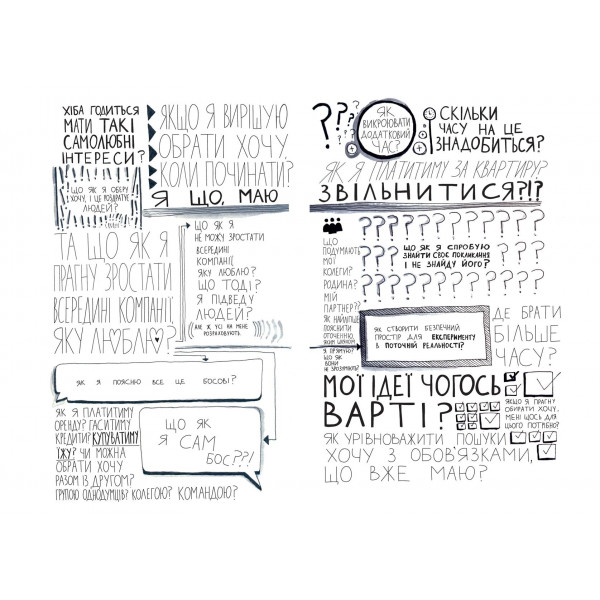 ХІБА ГОДИТЬСЯ
МАТИ ТАКІ
САМОЛЮБНІ
ІНТЕРЕСИ?
ЯКЩО Я ВИРІШУЮ
ОБРАТИ ХОЧУ
КОЛИ ПОЧИНАТИ?
Я ЩО, МАЮ
ЗВІЛЬНИТИСЯ?!?
ЩО ЯК Я ОБЕРУ
ХОЧУ, І ЦЕ РОЗДРАТУЄ
ЛЮДЕЙ?
ТА ЩО ЯК Я
ПРАГНУ ЗРОСТАТИ
ВСЕРЕДИНІ КОМПАНІЇ,
ЯКУ ЛЮБЛЮ?
ЩО ЯК Я
НЕ МОЖУ ЗРОСТАТИ
ВСЕРЕДИНІ
КОМПАНІЇ
ЯКУ ЛЮБЛЮ?
ЩО ТОДІ?
Я ПІДВЕДУ
ЛЮДЕЙ?
(АЛЕ Ж УСІ НА МЕНЕ
РОЗРАХОВУЮТЬ.)
ЯК Я ПОЯСНЮ ВСЕ ЦЕ БОСОВІ?
ЯК Я ПЛАТИТИМУ
ОРЕНДУ? ГАСИТИМУ
КРЕДИТИ? КУПУВАТИМУ
ЇЖУ? ЧИ МОЖНА
ОБРАТИ ХОЧУ
РАЗОМ ІЗ ДРУГОМ?
ГРУПОЮ ОДНОДУМЦІВ? КОЛЕГОЮ? КОМАНДОЮ?
ЩО ЯК
Я САМ
БОС???!
????
ЯК
ВИКРОЮВАТИ
ДОДАТКОВИЙ
ЧАС?
СКІЛЬКИ
ЧАСУ НА ЦЕ
ЗНАДОБИТЬСЯ?
ЯК Я ПЛАТИТИМУ ЗА КВАРТИРУ?
ЩО
ПОДУМАЮТЬ
МОЇ
КОЛЕГИ?
РОДИНА?
МІЙ
ПАРТНЕР??
ЯК НАЙЛІПШЕ
ПОЯСНИТИ
ОТОЧЕННЮ,
ЯКИМ ШЛЯХОМ
Я ПРЯМУЮ?
ЩО ЯК
ВОНИ
НЕ ЗРОЗУМІЮТЬ?
ЩО ЯК Я СПРОБУЮ
ЗНАЙТИ СВОЄ ПОКЛИКАННЯ
І НЕ ЗНАЙДУ ЙОГО?
ЯК СТВОРИТИ БЕЗПЕЧНИЙ
ПРОСТІР ДЛЯ ЕКСПЕРИМЕНТУ
В ПОТОЧНІЙ РЕАЛЬНОСТІ?
ДЕ БРАТИ
БІЛЬШЕ
ЧАСУ?
МОЇ ІДЕЇ ЧОГОСЬ
ВАРТІ?
ЯКЩО Я ПРАГНУ
ОБИРАТИ ХОЧУ,
МЕНІ ЩОСЬ ДЛЯ
ЦЬОГО ПОТРІБНО?
ЯК УРІВНОВАЖИТИ ПОШУКИ
ХОЧУ З ОБОВ'ЯЗКАМИ,
ЩО ВЖЕ МАЮ?